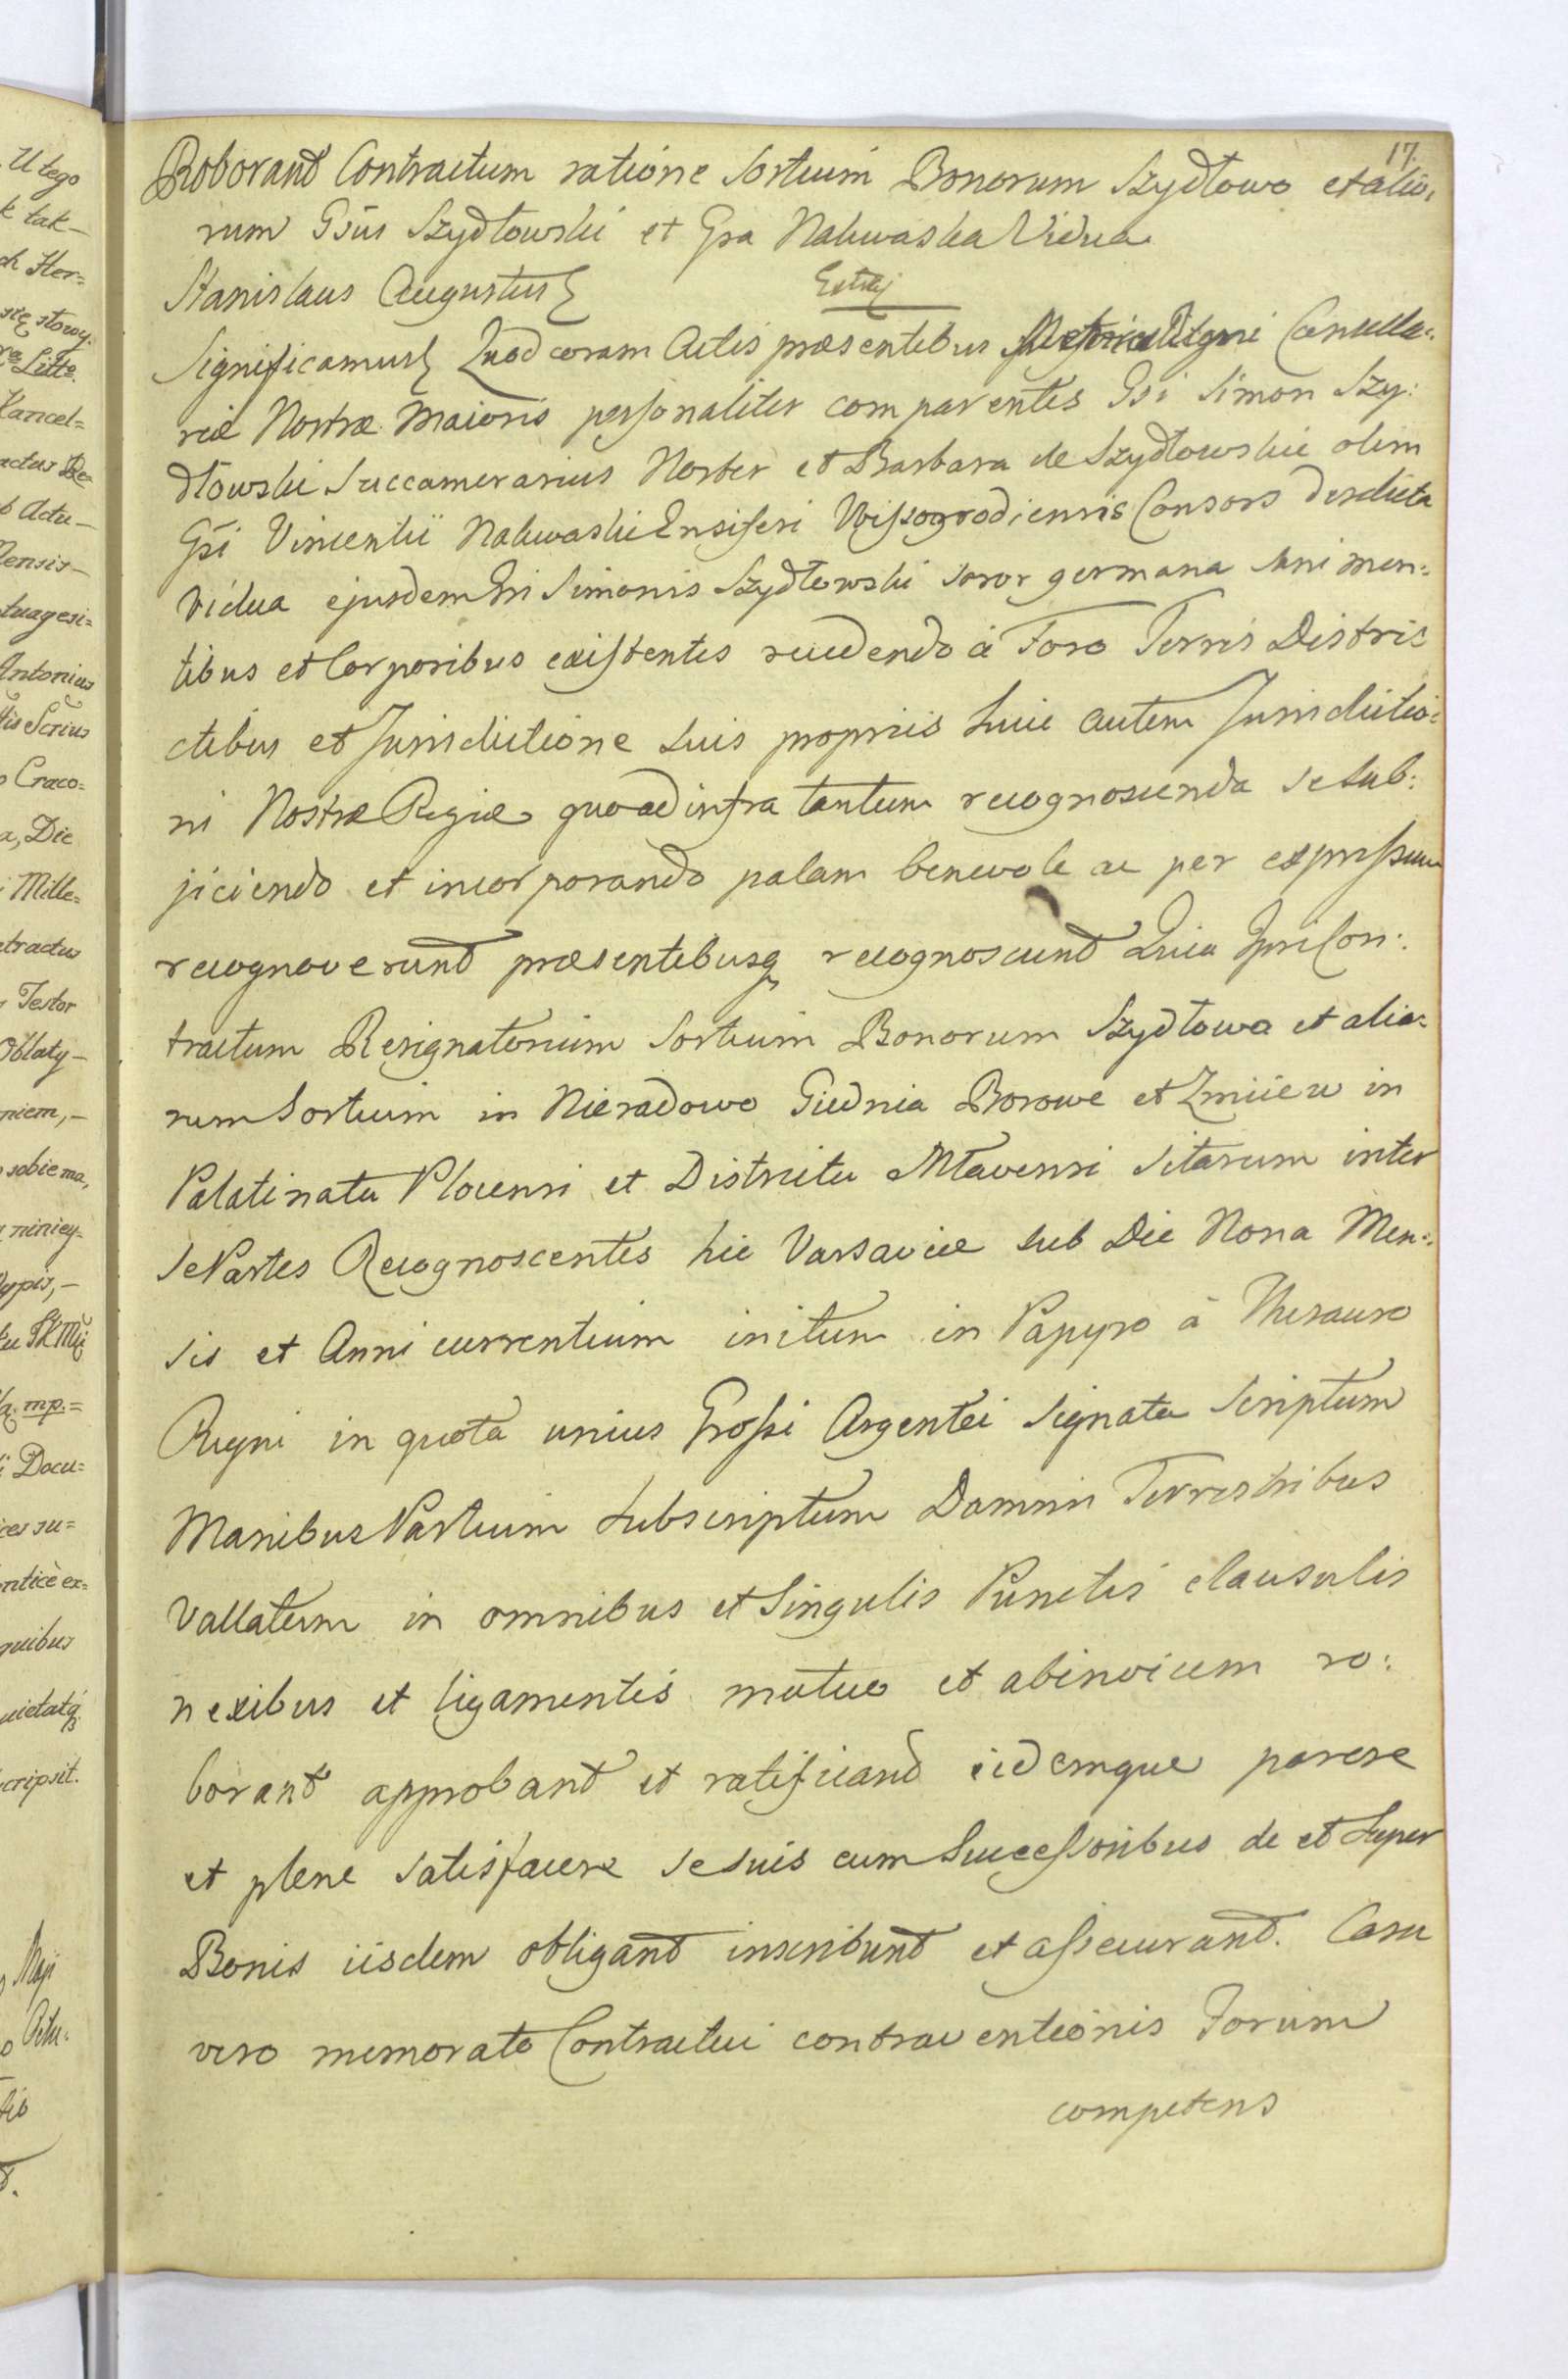 17.
Roborant Contractum ratione Sortium Bonorum Szydłowo et alio:
rum Gsūs Szydłowski et Gsa Nakwaska Vidua
Stanislaus Augustus
Significamus Quod coram Actis præsentibus Metrices Regni Cancella:
riæ Nostræ Maioris personaliter comparentes Gsi Simon Szy:
dłowski Succamerarius Noster et Barbara de Szydłowskie olim
Gsi Vincentii Nakwaski Ensiferi Wissogrodiensis Consors derelicta
Vidua ejusdem Gsi Simonis Szydłowski soror germana Sani men:
tibus et Corporibus existentes recedendo à Foro Terris Distric
ctibus et Jurisdictione suis propriis huic autem Jurisdictio:
ni Nostræ Regiæ quo ad infra tantum recognoscenda se sub:
jiciendo et incorporando palam benevole ac per expressum
recognoverunt præsentibusq recognoscunt Quia Ipsi Con:
tractum Resignatorium Sortium Bonorum Szydłowo et alia:
rum Sortium in Nieradowo Giednia Borowe et Zmiiew in
Palatinatu Plocensi et Districtu Mlavensi sitarum inter
se Partes Recognoscentes hic Varsaviæ sub Die Nona Men:
sis et Anni currentium initum in Papyro à Thesauro
Regni in quota unius Grossi Argentei signata Scriptum
Manibus Partium subscriptum Damnis Terrestribus
Vallatum in omnibus et Singulis Punctis clausulis
nexibus et ligamentis mutuo et abinvicem ro:
borant approbant et ratificant eidemque parere
et plene satisfacere se suis cum Successoribus de et super
Bonis iisdem obligant inscribunt et assecurant. Casu
vero memorato Contractui contraventionis Forum
competens
U tego
k tak-
ch Her=
się stowy.
Litte.
Kancel=
actus Re=
Actu-
ensis-
tuagesi=
Antonius
tis Scrius
Craco=
a, Die
Mille=
tractus
Testor
Oblaty-
niem,-
sobie ma,
niniey=
ypis,-
mp.=
Docu=
ces su=
entice ex=
quibus
cripsit.